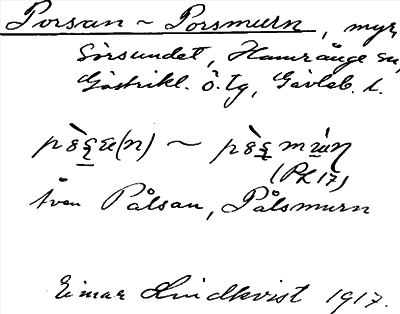 Porsan ~ Porsmurn, myr,
Sörsundet, Hamrånge sn,
Gästrikl. ö. tg, Gävleb. l.
(PL 17)
även Pålsan, Pålsmurn
Einar Lindkvist 1917.